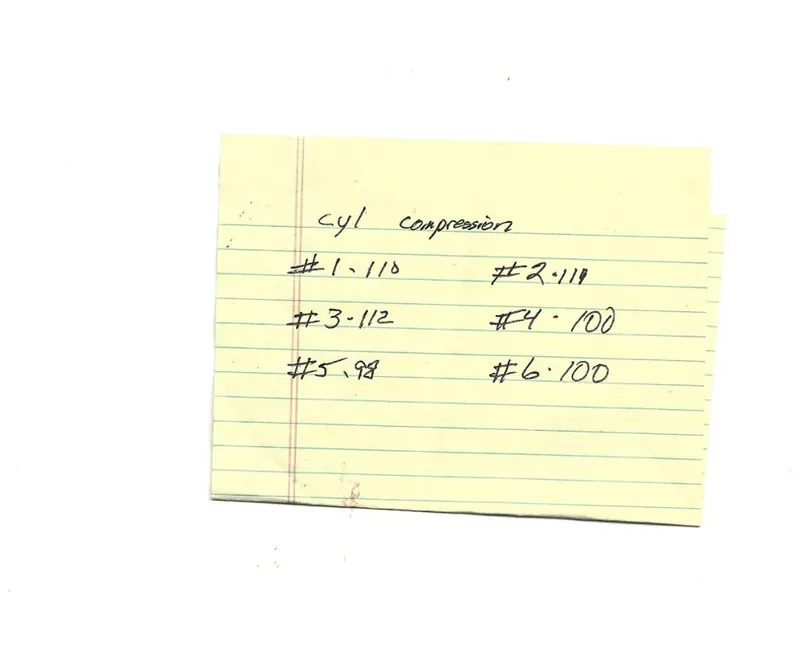 cyl compression
#1 - 110 #2 - 111
#3 - 112 #4 - 100
#5 - 98 #6 - 100